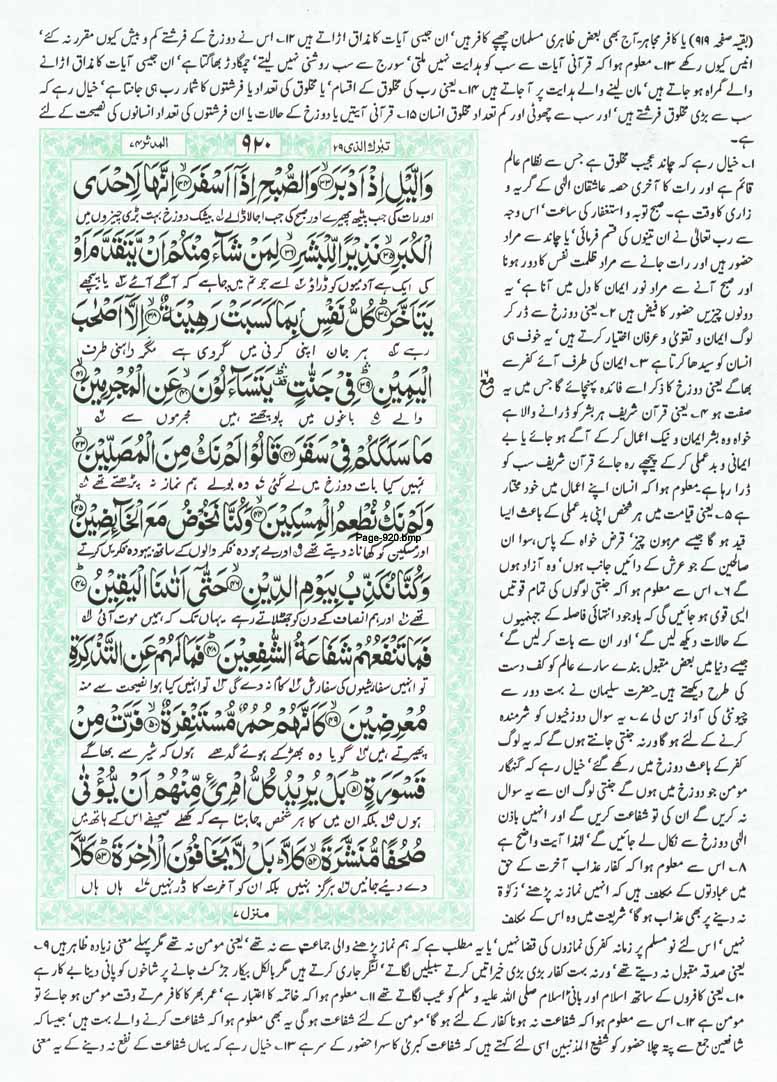 (بقیہ صفحہ ۹۱۹) یا کافر مجاہر۔ آج بھی بعض ظاہری مسلمان چھپے کافر ہیں' ان جیسی آیات کا مذاق اڑاتے ہیں ۱۲۔ اس نے دوزخ کے فرشتے کم و بیش کیوں مقرر نہ کئے'
انیس کیوں رکھے ۱۳۔ معلوم ہوا کہ قرآنی آیات سے سب کو ہدایت نہیں ملتی' سورج سے سب روشنی نہیں لیتے' چمگادڑ بھاگتا ہے' ان جیسی آیات کا مذاق اڑانے
والے گمراہ ہو جاتے ہیں' مان لینے والے ہدایت پر آ جاتے ہیں ۱۴۔ یعنی رب کی مخلوق کے اقسام' یا مخلوق کی تعداد یا فرشتوں کا شمار رب ہی جانتا ہے' خیال رہے کہ
سب سے بڑی مخلوق فرشتے ہیں' اور سب سے چھوٹی اور کم تعداد مخلوق انسان ۱۵۔ قرآنی آیتیں یا دوزخ کے حالات یا ان فرشتوں کی تعداد انسانوں کی نصیحت کے لئے
ہے۔
تبٰرك الذی ۲۹
۹۲۰
المدثر ۷۴
وَالَّيْلِ اِذْ اَدْبَرَ ۙ﴿۳۳﴾ وَالصُّبْحِ اِذَاۤ اَسْفَرَ ۙ﴿۳۴﴾ اِنَّهَا لَاِحْدَى
اور رات کی جب پیٹھ پھیرے اور صبح کی جب اجالا ڈالے ۱؎ بیشک دوزخ بہت بڑی چیزوں میں
الْكُبَرِ ۙ﴿۳۵﴾ نَذِيْرًا لِّلْبَشَرِ ۙ﴿۳۶﴾ لِمَنْ شَآءَ مِنْكُمْ اَنْ يَّتَقَدَّمَ اَوْ
کی ایک ہے آدمیوں کو ڈراؤ ۲؎ اسے جو تم میں چاہے کہ آگے آئے ۳؎ یا پیچھے
يَتَاَخَّرَ ؕ﴿۳۷﴾ كُلُّ نَفْسٍۭ بِمَا كَسَبَتْ رَهِيْنَةٌ ۙ﴿۳۸﴾ اِلَّاۤ اَصْحٰبَ
رہے ۴؎ ہر جان اپنی کرنی میں گروی ہے مگر داہنی طرف
الْيَمِيْنِ ؕ﴿۳۹﴾ فِيْ جَنّٰتٍ ۛ يَتَسَآءَلُوْنَ ۙ﴿۴۰﴾ عَنِ الْمُجْرِمِيْنَ ۙ﴿۴۱﴾
والے ۵؎ باغوں میں پوچھتے ہیں مجرموں سے ۶؎
مَا سَلَكَكُمْ فِيْ سَقَرَ ﴿۴۲﴾ قَالُوْا لَمْ نَكُ مِنَ الْمُصَلِّيْنَ ۙ﴿۴۳﴾
تمہیں کیا بات دوزخ میں لے گئی ۷؎ وہ بولے ہم نماز نہ پڑھتے تھے ۸؎
وَلَمْ نَكُ نُطْعِمُ الْمِسْكِيْنَ ۙ﴿۴۴﴾ وَكُنَّا نَخُوْضُ مَعَ الْخَآئِضِيْنَ ۙ﴿۴۵﴾
Page-920.bmp
اور مسکین کو کھانا نہ دیتے تھے ۹؎ اور بے ہودہ فکر والوں کے ساتھ بیہودہ فکریں کرتے
وَكُنَّا نُكَذِّبُ بِيَوْمِ الدِّيْنِ ۙ﴿۴۶﴾ حَتّٰۤى اَتٰىنَا الْيَقِيْنُ ؕ﴿۴۷﴾
تھے ۱۰؎ اور ہم انصاف کے دن کو جھٹلاتے رہے یہاں تک کہ ہمیں موت آئی ۱۱؎
فَمَا تَنْفَعُهُمْ شَفَاعَةُ الشّٰفِعِيْنَ ؕ﴿۴۸﴾ فَمَا لَهُمْ عَنِ التَّذْكِرَةِ
تو انہیں سفارشیوں کی سفارش ۱۲؎ کام نہ دے گی ۱۳؎ تو انہیں کیا ہوا نصیحت سے منہ
مُعْرِضِيْنَ ۙ﴿۴۹﴾ كَاَنَّهُمْ حُمُرٌ مُّسْتَنْفِرَةٌ ۙ﴿۵۰﴾ فَرَّتْ مِنْ
پھیرتے ہیں گویا وہ بھڑکے ہوئے گدھے ہوں کہ شیر سے بھاگے
قَسْوَرَةٍ ؕ﴿۵۱﴾ بَلْ يُرِيْدُ كُلُّ امْرِئٍ مِّنْهُمْ اَنْ يُّؤْتٰى
ہوں بلکہ ان میں کا ہر شخص چاہتا ہے کہ کھلے صحیفے اس کے ہاتھ میں
صُحُفًا مُّنَشَّرَةً ۙ﴿۵۲﴾ كَلَّا ؕ بَلْ لَّا يَخَافُوْنَ الْاٰخِرَةَ ؕ﴿۵۳﴾ كَلَّاۤ
دے دیئے جائیں ہرگز نہیں بلکہ ان کو آخرت کا ڈر نہیں ہاں ہاں
منزل ۷
ع
۱۶
۱۔ خیال رہے کہ چاند عجیب مخلوق ہے جس سے نظام عالم
قائم ہے اور رات کا آخری حصہ عاشقان الٰہی کے گریہ و
زاری کا وقت ہے۔ صبح توبہ و استغفار کی ساعت' اس وجہ
سے رب تعالیٰ نے ان تینوں کی قسم فرمائی' یا چاند سے مراد
حضور ہیں اور رات جانے سے مراد ظلمت نفس کا دور ہونا
اور صبح آنے سے مراد نور ایمان کا دل میں آنا ہے' یہ
دونوں چیزیں حضور کا فیض ہیں ۲۔ یعنی دوزخ سے ڈر کر
لوگ ایمان و تقویٰ و عرفان اختیار کرتے ہیں' یہ خوف ہی
انسان کو سیدھا کرتا ہے ۳۔ ایمان کی طرف آئے کفر سے
بھاگے یعنی دوزخ کا ذکر اسے فائدہ پہنچائے گا جس میں یہ
صفت ہو ۴۔ یعنی قرآن شریف ہر بشر کو ڈرانے والا ہے
خواہ وہ بشر ایمان و نیک اعمال کر کے آگے ہو جائے یا بے
ایمانی و بدعملی کر کے پیچھے رہ جائے قرآن شریف سب کو
ڈرا رہا ہے۔ معلوم ہوا کہ انسان اپنے اعمال میں خود مختار
ہے ۵۔ یعنی قیامت میں ہر شخص اپنی بدعملی کے باعث ایسا
قید ہو گا جیسے مرہون چیز' قرض خواہ کے پاس' سوا ان
صالحین کے جو عرش کے دائیں جانب ہوں' وہ آزاد ہوں
گے ۶۔ اس سے معلوم ہوا کہ جنتی لوگوں کی تمام قوتیں
ایسی قوی ہو جائیں گی کہ باوجود انتہائی فاصلہ کے جہنمیوں
کے حالات دیکھ لیں گے' اور ان سے بات کر لیں گے'
جیسے دنیا میں بعض مقبول بندے سارے عالم کو کف دست
کی طرح دیکھتے ہیں۔ حضرت سلیمان نے بہت دور سے
چیونٹی کی آواز سن لی ۷۔ یہ سوال دوزخیوں کو شرمندہ
کرنے کے لئے ہو گا ورنہ جنتی جانتے ہوں گے کہ یہ لوگ
کفر کے باعث دوزخ میں رکھے گئے' خیال رہے کہ گنہگار
مومن جو دوزخ میں ہوں گے جنتی لوگ ان سے یہ سوال
نہ کریں گے ان کی تو شفاعت کریں گے اور انہیں باذن
الٰہی دوزخ سے نکال لے جائیں گے' لہٰذا آیت واضح ہے
۸۔ اس سے معلوم ہوا کہ کفار عذاب آخرت کے حق
میں عبادتوں کے مکلف ہیں کہ انہیں نماز نہ پڑھنے' زکوٰۃ
نہ دینے پر بھی عذاب ہو گا' شریعت میں وہ اس کے مکلف
نہیں' اس لئے نو مسلم پر زمانہ کفر کی نمازوں کی قضا نہیں' یا یہ مطلب ہے کہ ہم نماز پڑھنے والی جماعت سے نہ تھے' یعنی مومن نہ تھے مگر پہلے معنی زیادہ ظاہر ہیں ۹۔
یعنی صدقہ مقبول نہ دیتے تھے' ورنہ بہت کفار بڑی بڑی خیراتیں کرتے سبیلیں لگاتے' لنگر جاری کرتے ہیں مگر بالکل بیکار جڑ کٹ جانے پر شاخوں کو پانی دینا بے کار ہے
۱۰۔ یعنی کافروں کے ساتھ اسلام اور بانی اسلام صلی اللہ علیہ وسلم کو عیب لگاتے تھے ۱۱۔ معلوم ہوا کہ خاتمہ کا اعتبار ہے' عمر بھر کا کافر مرتے وقت مومن ہو جائے تو
مومن ہے ۱۲۔ اس سے معلوم ہوا کہ شفاعت نہ ہونا کفار کے لئے ہو گا' مومن کے لئے شفاعت ہو گی یہ بھی معلوم ہوا کہ شفاعت کرنے والے بہت ہیں' جیسا کہ
شافعین جمع سے پتہ چلا حضور کو شفیع المذنبین اسی لئے کہتے ہیں کہ شفاعت کبریٰ کا سہرا حضور کے سر ہے ۱۳۔ خیال رہے کہ یہاں شفاعت کے نفع نہ دینے کے یہ معنی